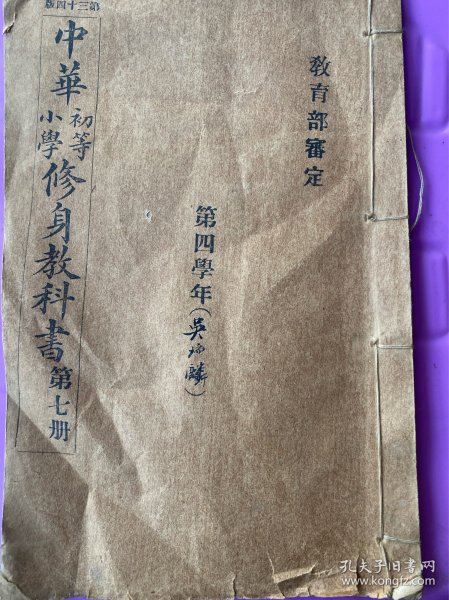 教育部審定
第四學年(吳 麟)
第三十四版
中華初等小學修身教科書第七册
孔夫子旧书网
www.kongfz.com